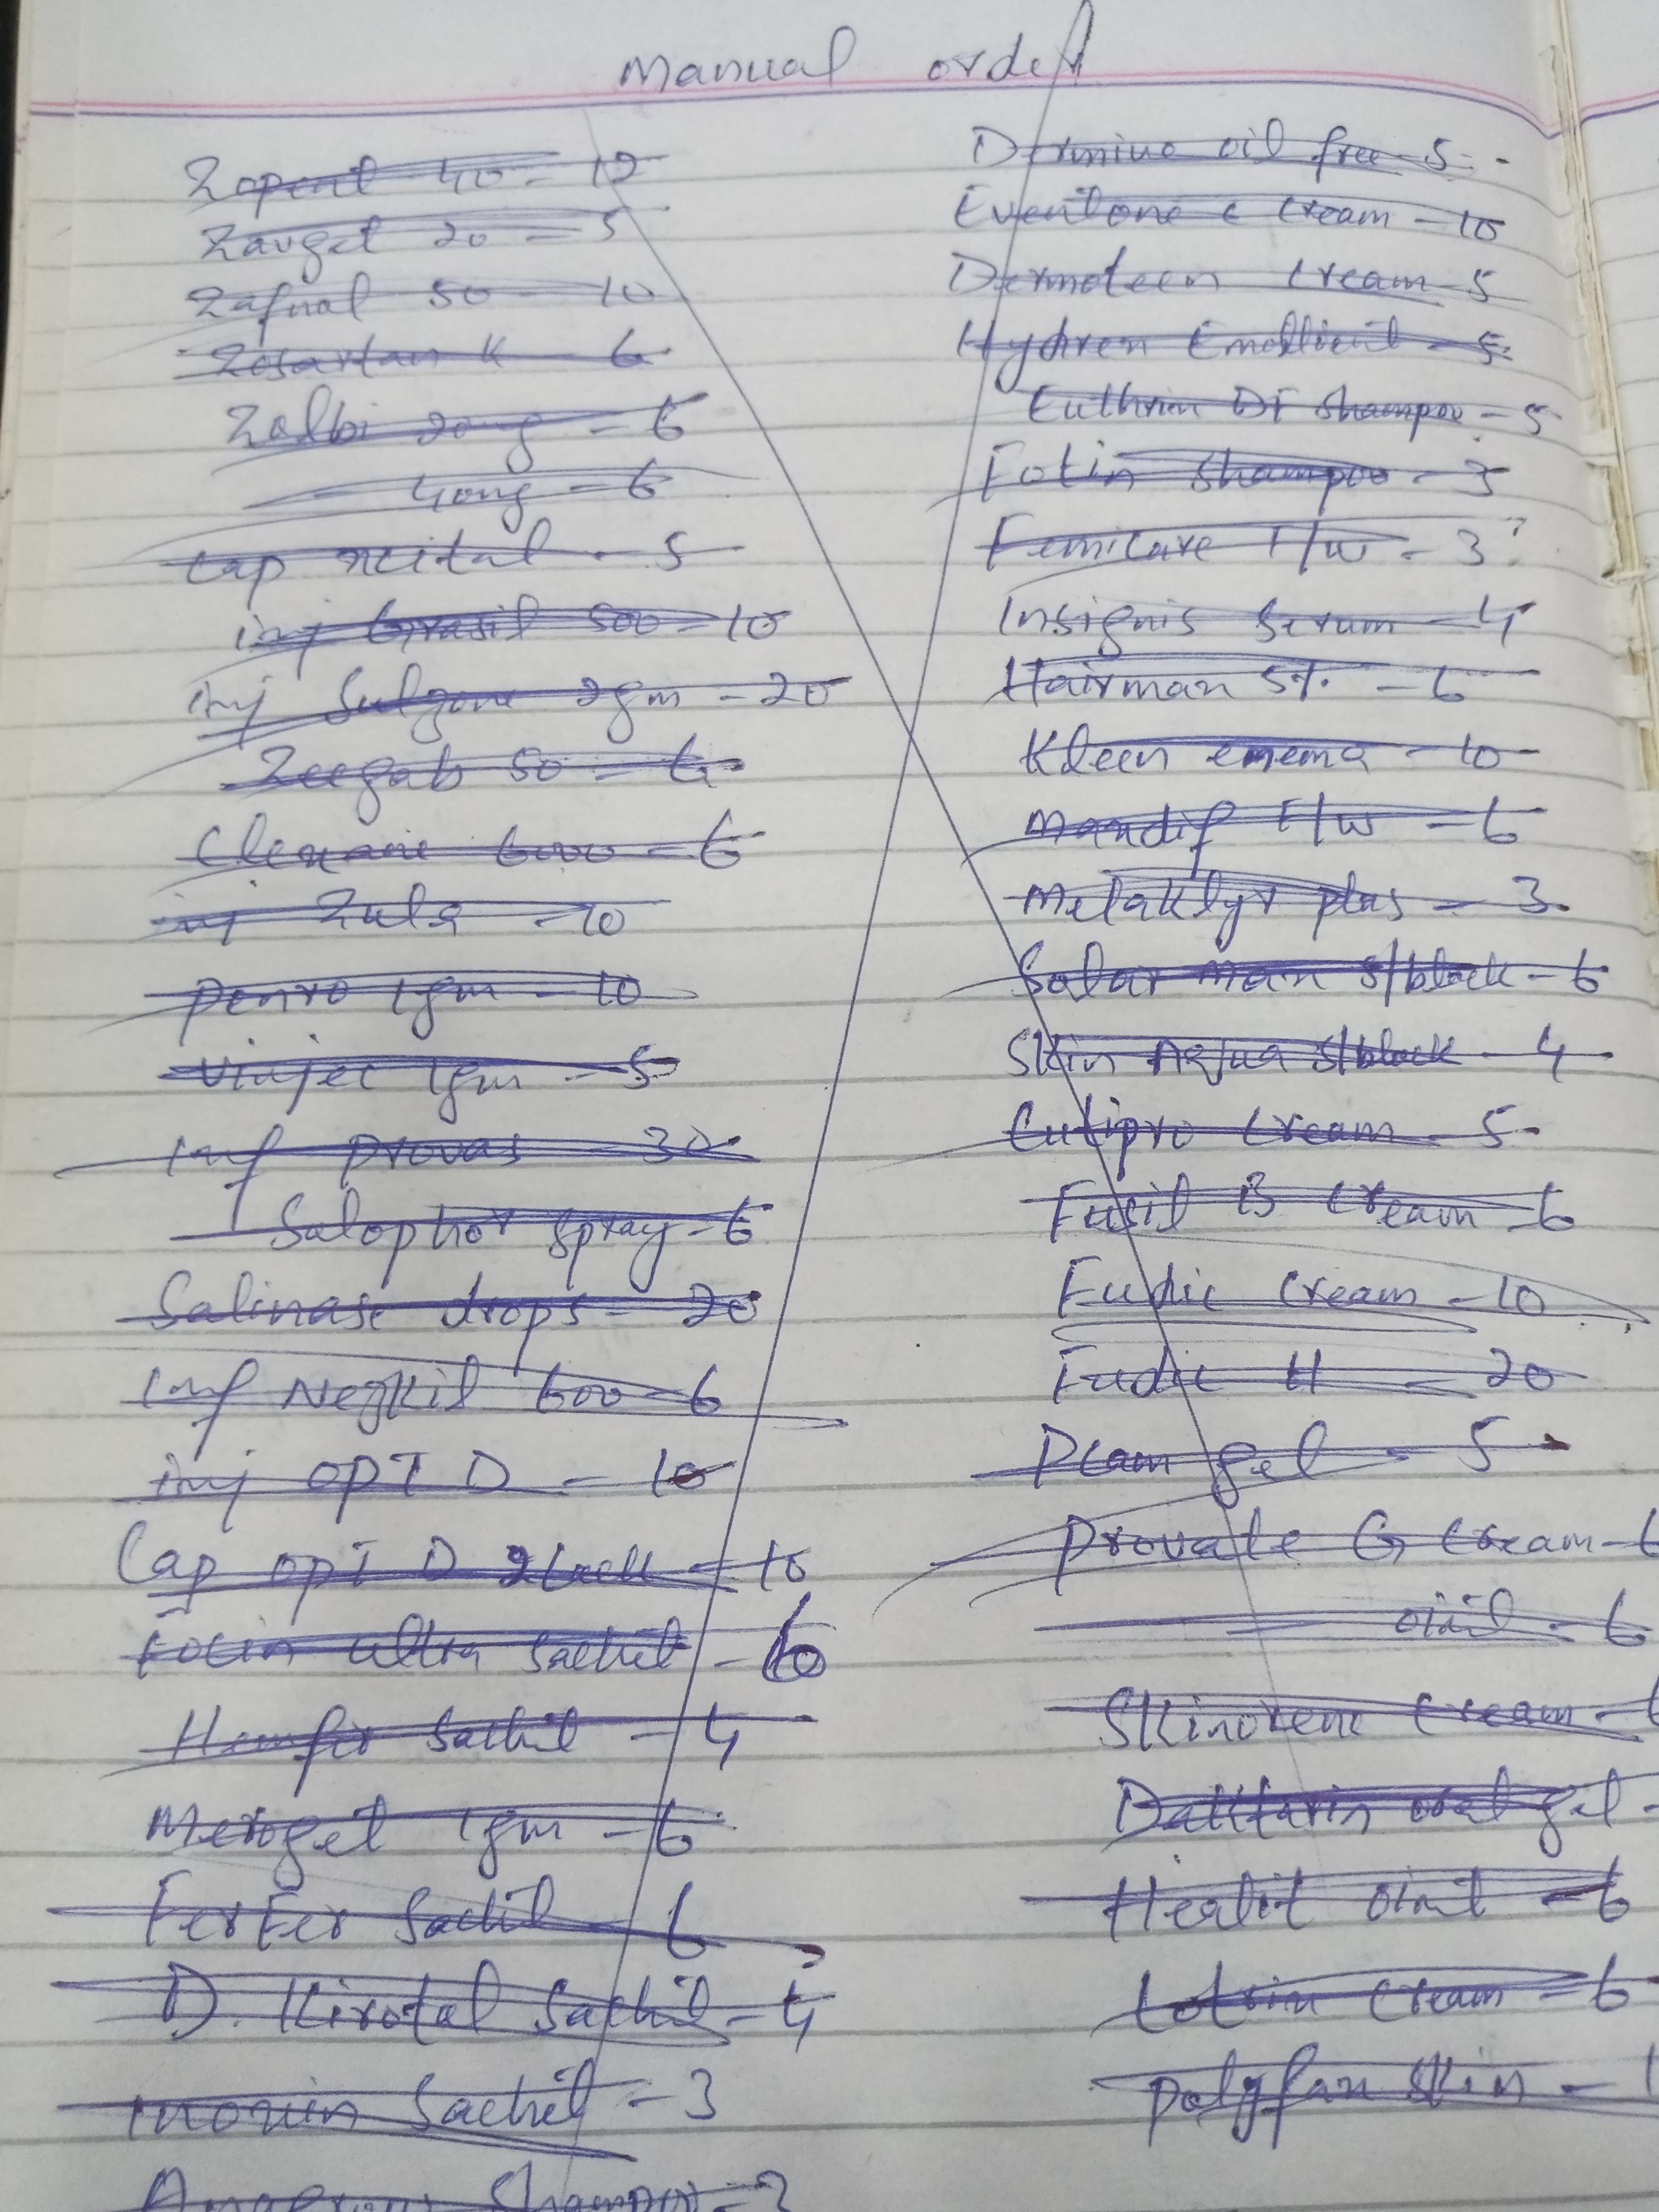 Manual order
Zopent 40 - 12
Zauget 20 - 5
Zafnal 50 - 10
Zosartan K - 6
Zalbi 20mg - 6
40mg - 6
Cap - 5
inj Grasil 500 - 10
inj Sulzone 2gm - 20
Zeegab 50 - 6
Clexane 6000 - 6
inj Zula - 10
Penro 1gm - 10
Vinjec 1gm - 5
Inf Provas - 30
Salophor Spray - 6
Salinase drops - 20
Inf Nezkil 600 - 6
inj OPT D - 10
Cap OPT D - 10
Fotin ultra Sachit -
Hemfer Sachit - 4
Merogel 1gm - 6
FerFer Sachit - 6
D. Kirotal Sachit - 4
Sachit - 3
Shampoo - 3
Dermive oil free - 5
Eventone c Cream - 10
Dermoteen Cream - 5
Hydren Emollient - 5
Euthrin DF Shampoo - 5
Fotin Shampoo - 3
Femicare F/W - 3
Insignis Serum - 4
Hairman 5%. - 6
Kleen enema - 10
Mandif F/W - 6
Melaklyr plus - 3
Solar Man S/block - 6
Skin Aqua S/block - 4
Cutipro Cream - 5
Fusil B Cream - 6
Fudic Cream - 10
Fudic H - 20
Dcam gel - 5
Provate G Cream - 6
oint - 6
Skinorene Cream - 6
Daktarin oral gel -
Healit oint - 6
Lotrim Cream - 6
Polyfax Skin - 1